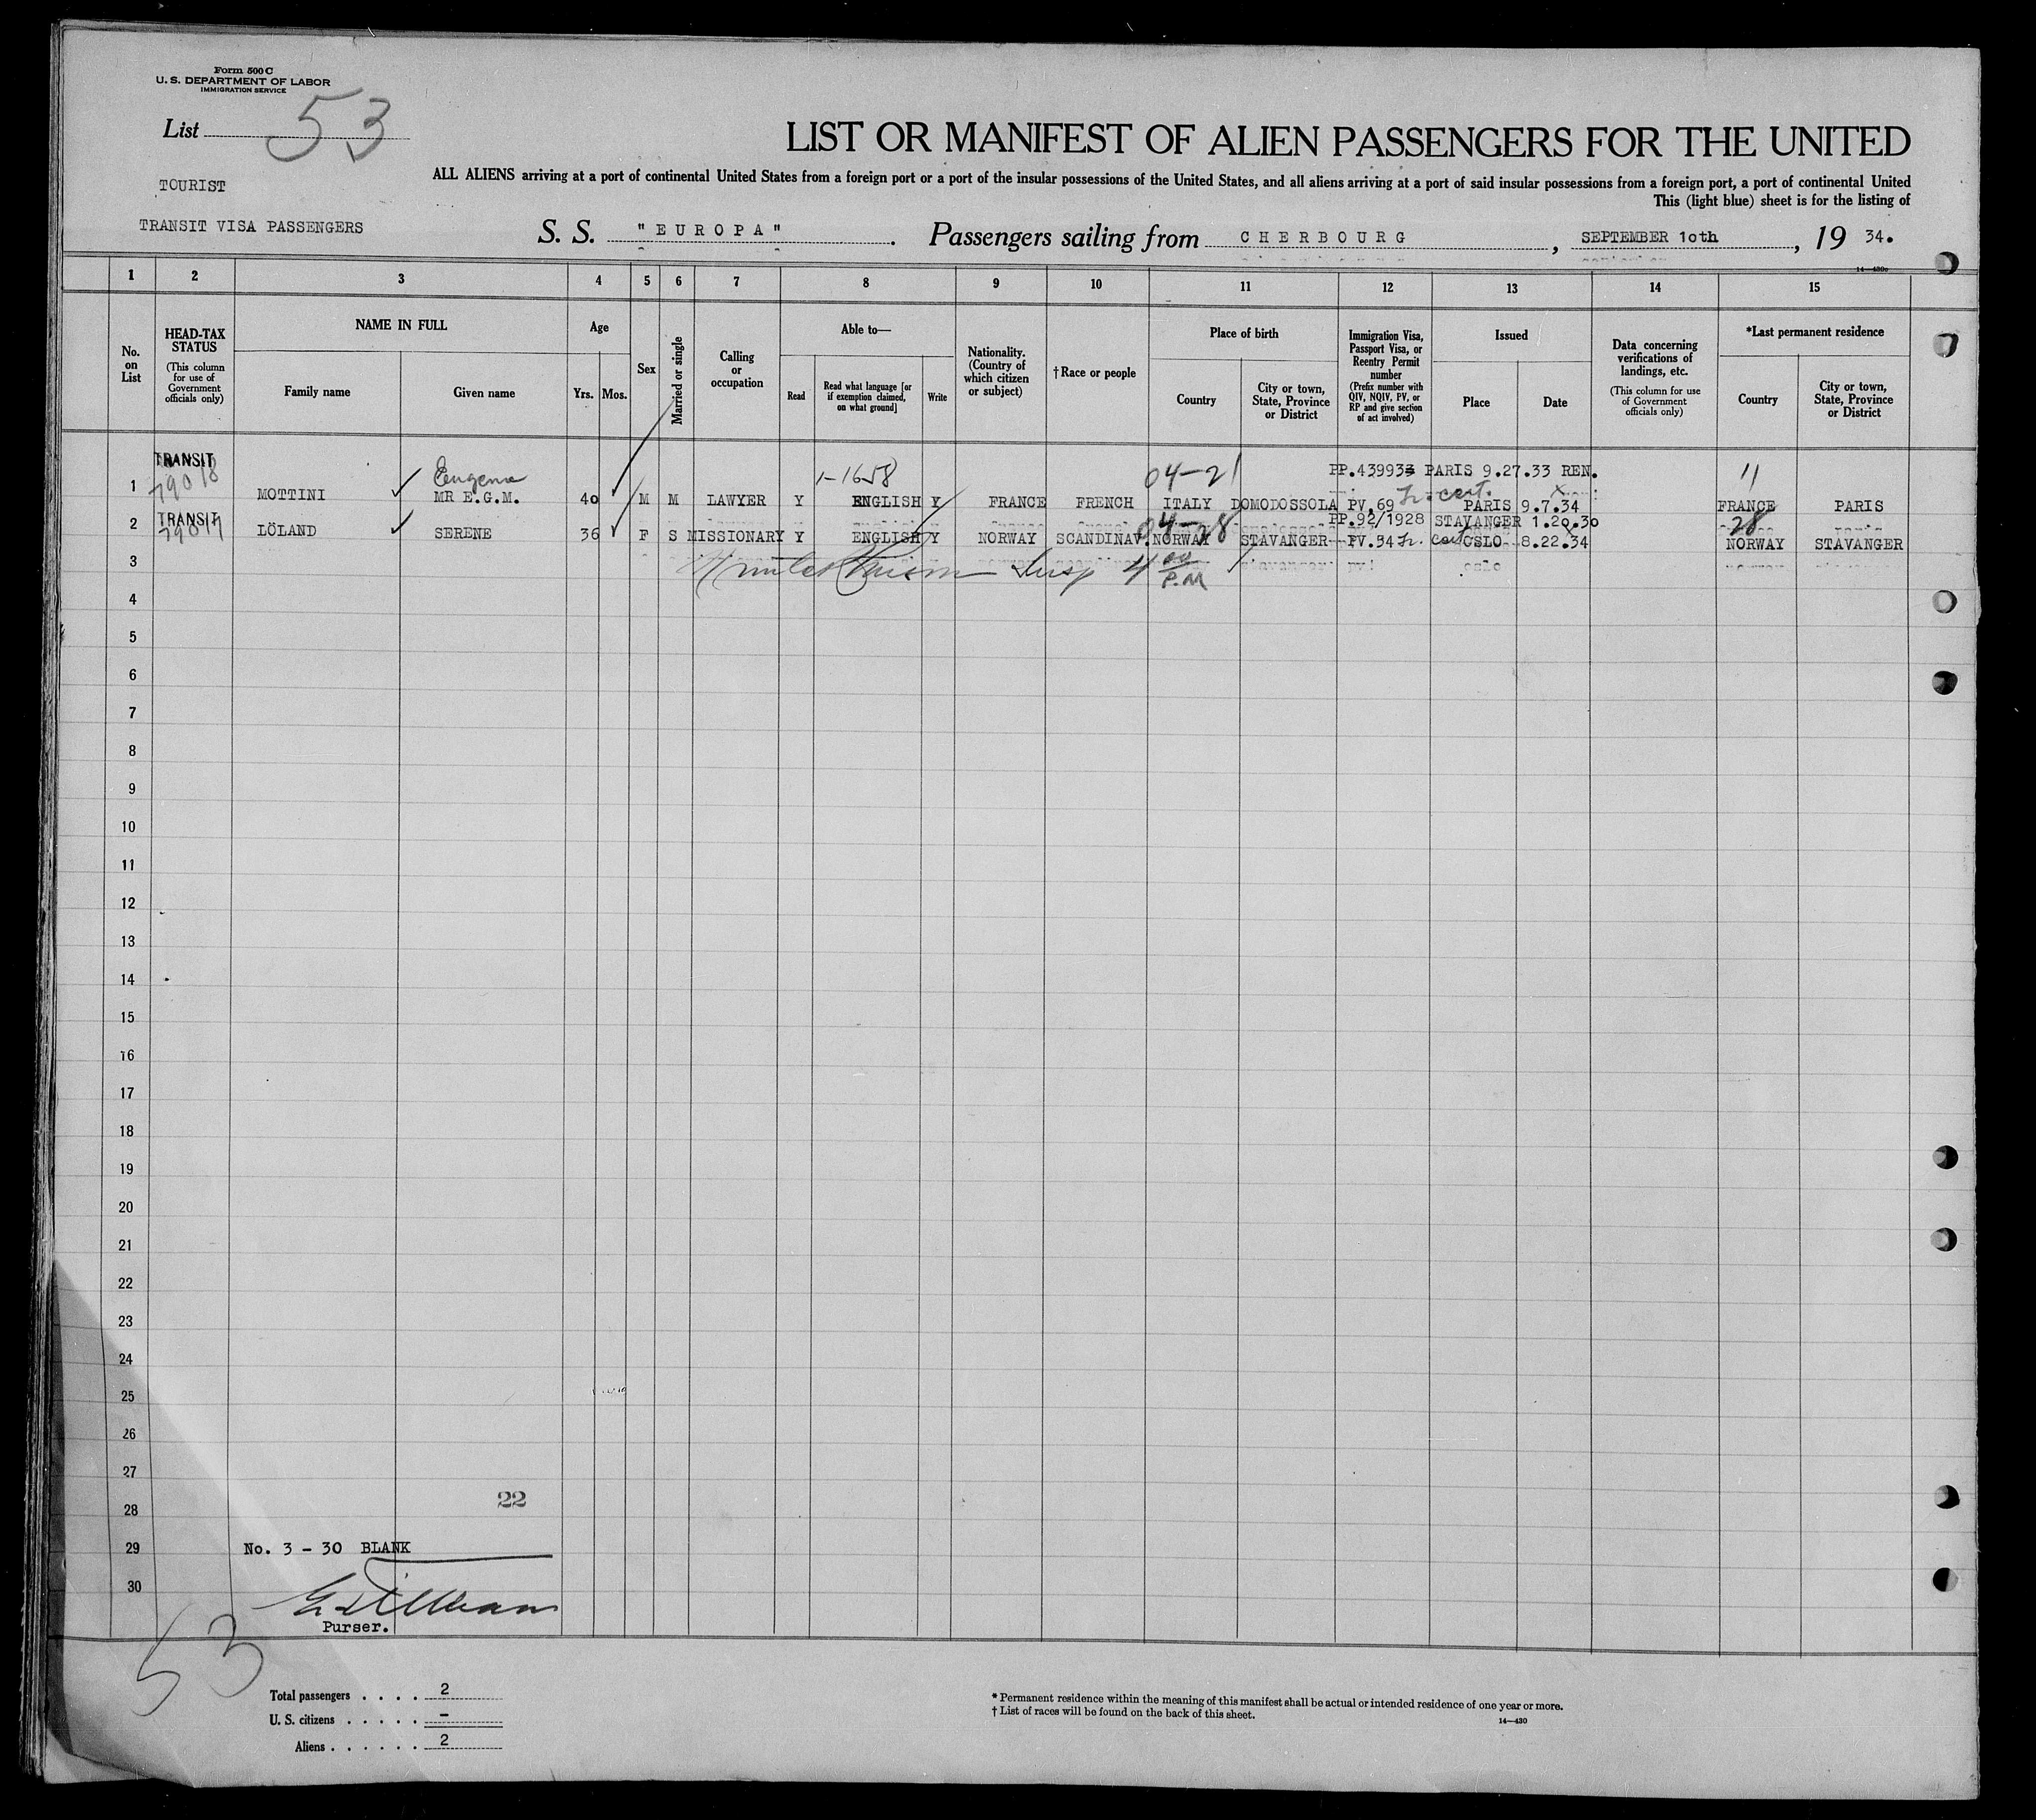 Form 500 C
U. S. DEPARTMENT OF LABOR
IMMIGRATION SERVICE
List 53
LIST OR MANIFEST OF ALIEN PASSENGERS FOR THE UNITED
ALL ALIENS arriving at a port of continental United States from a foreign port or a port of the insular possessions of the United States, and all aliens arriving at a port of said insular possessions from a foreign port, a port of continental United
This (light blue) sheet is for the listing of
TOURIST
TRANSIT VISA PASSENGERS
S. S. "EUROPA". Passengers sailing from CHERBOURG, SEPTEMBER 10th, 19 34.
14—430c
1 2 3 4 5 6 7 8 9 10 11 12 13 14 15
No. on List
HEAD-TAX STATUS
(This column for use of Government officials only)
NAME IN FULL
Family name
Given name
Age
Yrs. Mos.
Sex
Married or single
Calling or occupation
Able to—
Read
Read what language [or if exemption claimed, on what ground]
Write
Nationality. (Country of which citizen or subject)
† Race or people
Place of birth
Country
City or town, State, Province or District
Immigration Visa, Passport Visa, or Reentry Permit number
(Prefix number with QIV, NQIV, PV, or RP and give section of act involved)
Issued
Place
Date
Data concerning verifications of landings, etc.
(This column for use of Government officials only)
*Last permanent residence
Country
City or town, State, Province or District
TRANSIT Eugene 1-1658 04-21 PP.439933 PARIS 9.27.33 REN. 11
1 79018 MOTTINI MR E.G.M. 40 M M LAWYER Y ENGLISH Y FRANCE FRENCH ITALY DOMODOSSOLA PV.69 Tr. cert. PARIS 9.7.34 FRANCE PARIS
TRANSIT 04-28 PP.92/1928 STAVANGER 1.20.30 28
2 79017 LÖLAND SERENE 36 F S MISSIONARY Y ENGLISH Y NORWAY SCANDINAV. NORWAY STAVANGER PV.34 Tr. cert OSLO 8.22.34 NORWAY STAVANGER
3 Insp 4 00 P.M
4
5
6
7
8
9
10
11
12
13
14
15
16
17
18
19
20
21
22
23
24
25
26
27
28 22
29 No. 3 - 30 BLANK
30
Purser.
53
Total passengers . . . . 2
U. S. citizens . . . . . –
Aliens . . . . . . 2
* Permanent residence within the meaning of this manifest shall be actual or intended residence of one year or more.
† List of races will be found on the back of this sheet.
14—430